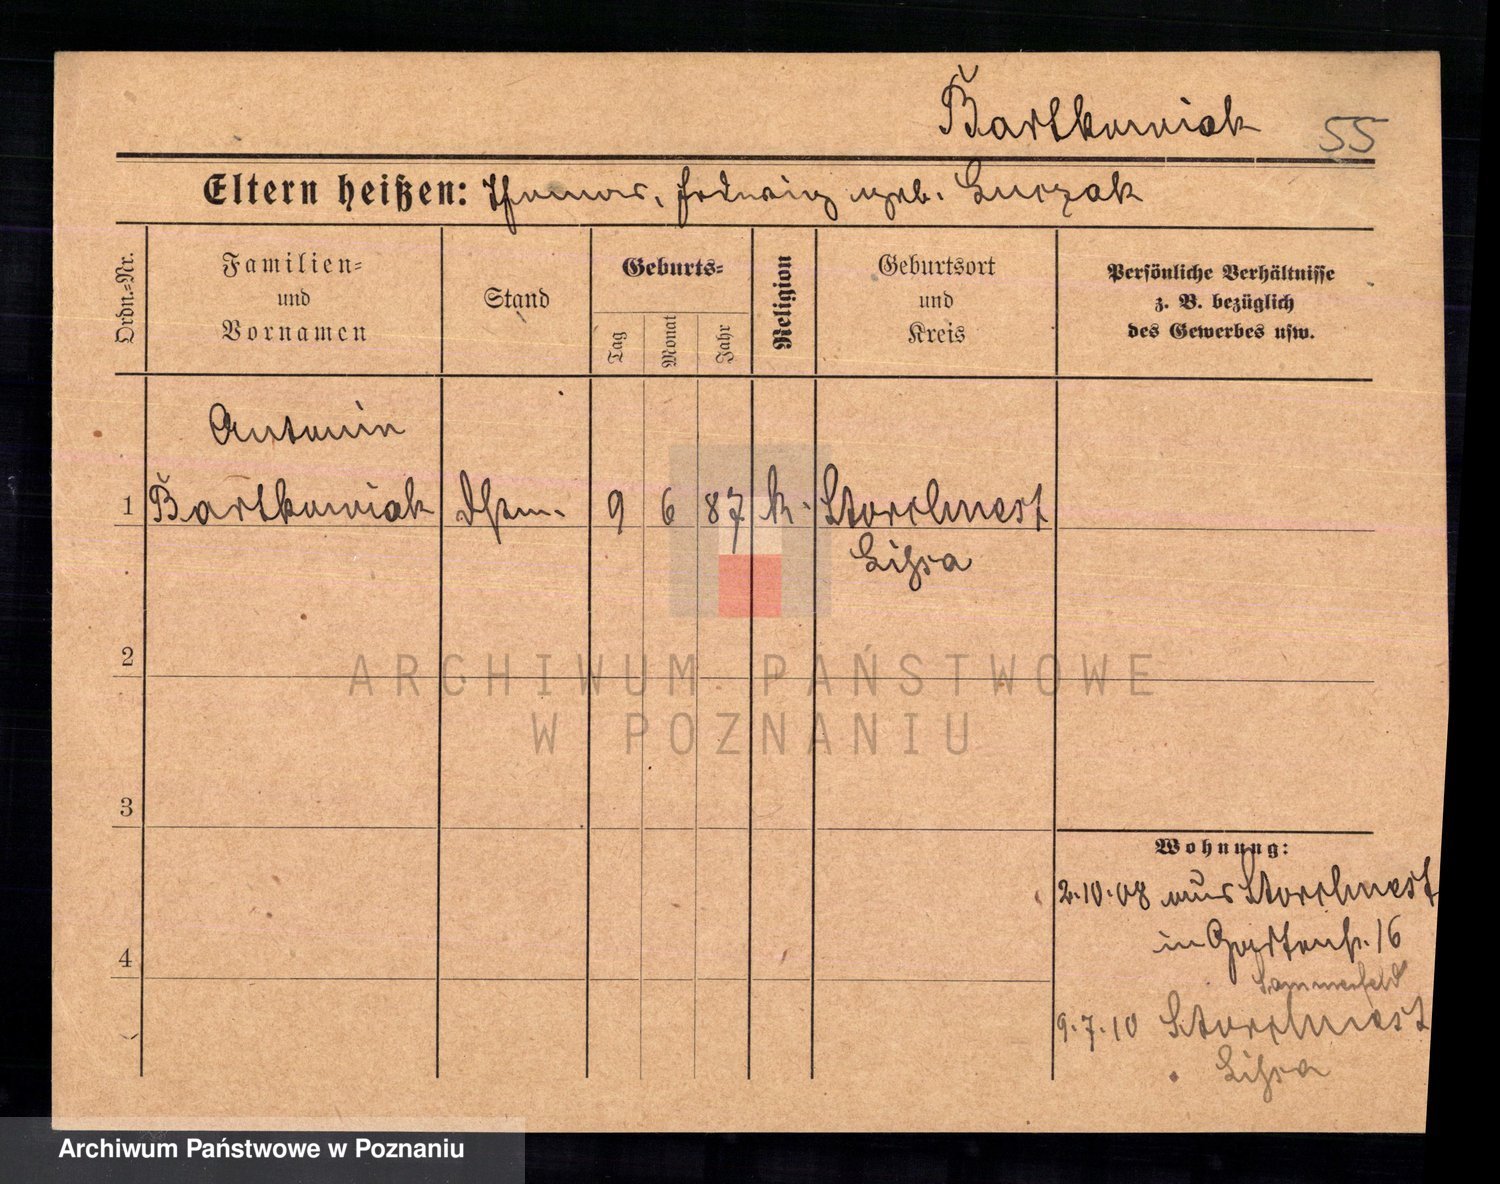 Bartkowiak 55
Eltern heißen: Thomas, Hedwig geb. Luczak
Ordn.-Nr.
Familien-
und
Vornamen
Stand
Geburts-
Tag
Monat
Jahr
Religion
Geburtsort
und
Kreis
Persönliche Verhältnisse
z. B. bezüglich
des Gewerbes usw.
Antonin
1 Bartkowiak 9 6 87 k. Storchnest
Lissa
2
ARCHIWUM PAŃSTWOWE
W POZNANIU
3
Wohnung:
2.10.08 aus Storchnest
4
in Gartenstr. 16
Sommerfeld
9.7.10 Storchnest
Lissa
Archiwum Państwowe w Poznaniu